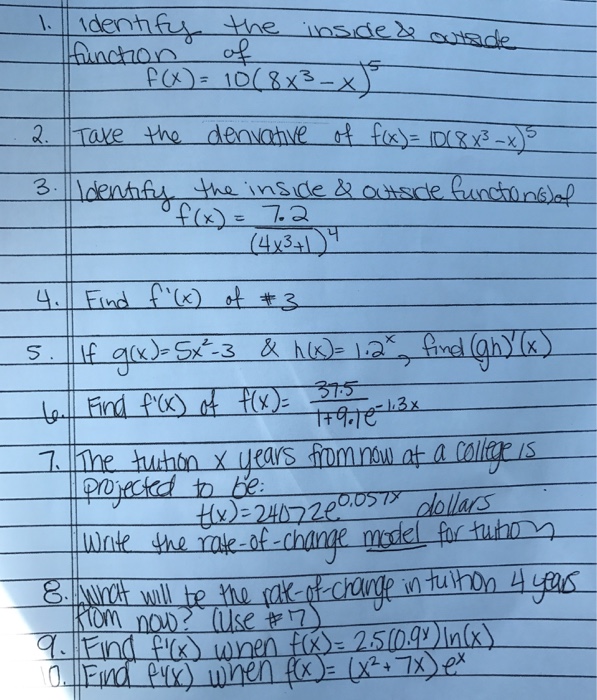 1. Identify the inside & outside
function of
f(x) = 10(8x³ - x)⁵
2. Take the derivative of f(x) = 10(8x³ - x)⁵
3. Identify the inside & outside function(s) of
f(x) = 7.2 / (4x³+1)⁴
4. Find f'(x) of #3
5. If g(x) = 5x²-3 & h(x) = 1.2ˣ, find (gh)'(x)
6. Find f'(x) of f(x) = 37.5 / 1+9.1e^-1.3x
7. The tuition x years from now at a college is
projected to be:
t(x) = 24072e^0.057x dollars
Write the rate-of-change model for tuition
8. What will be the rate-of-change in tuition 4 years
from now? (Use #7)
9. Find f'(x) when f(x) = 2.5(0.9ˣ)ln(x)
10. Find f'(x) when f(x) = (x² + 7x)eˣ